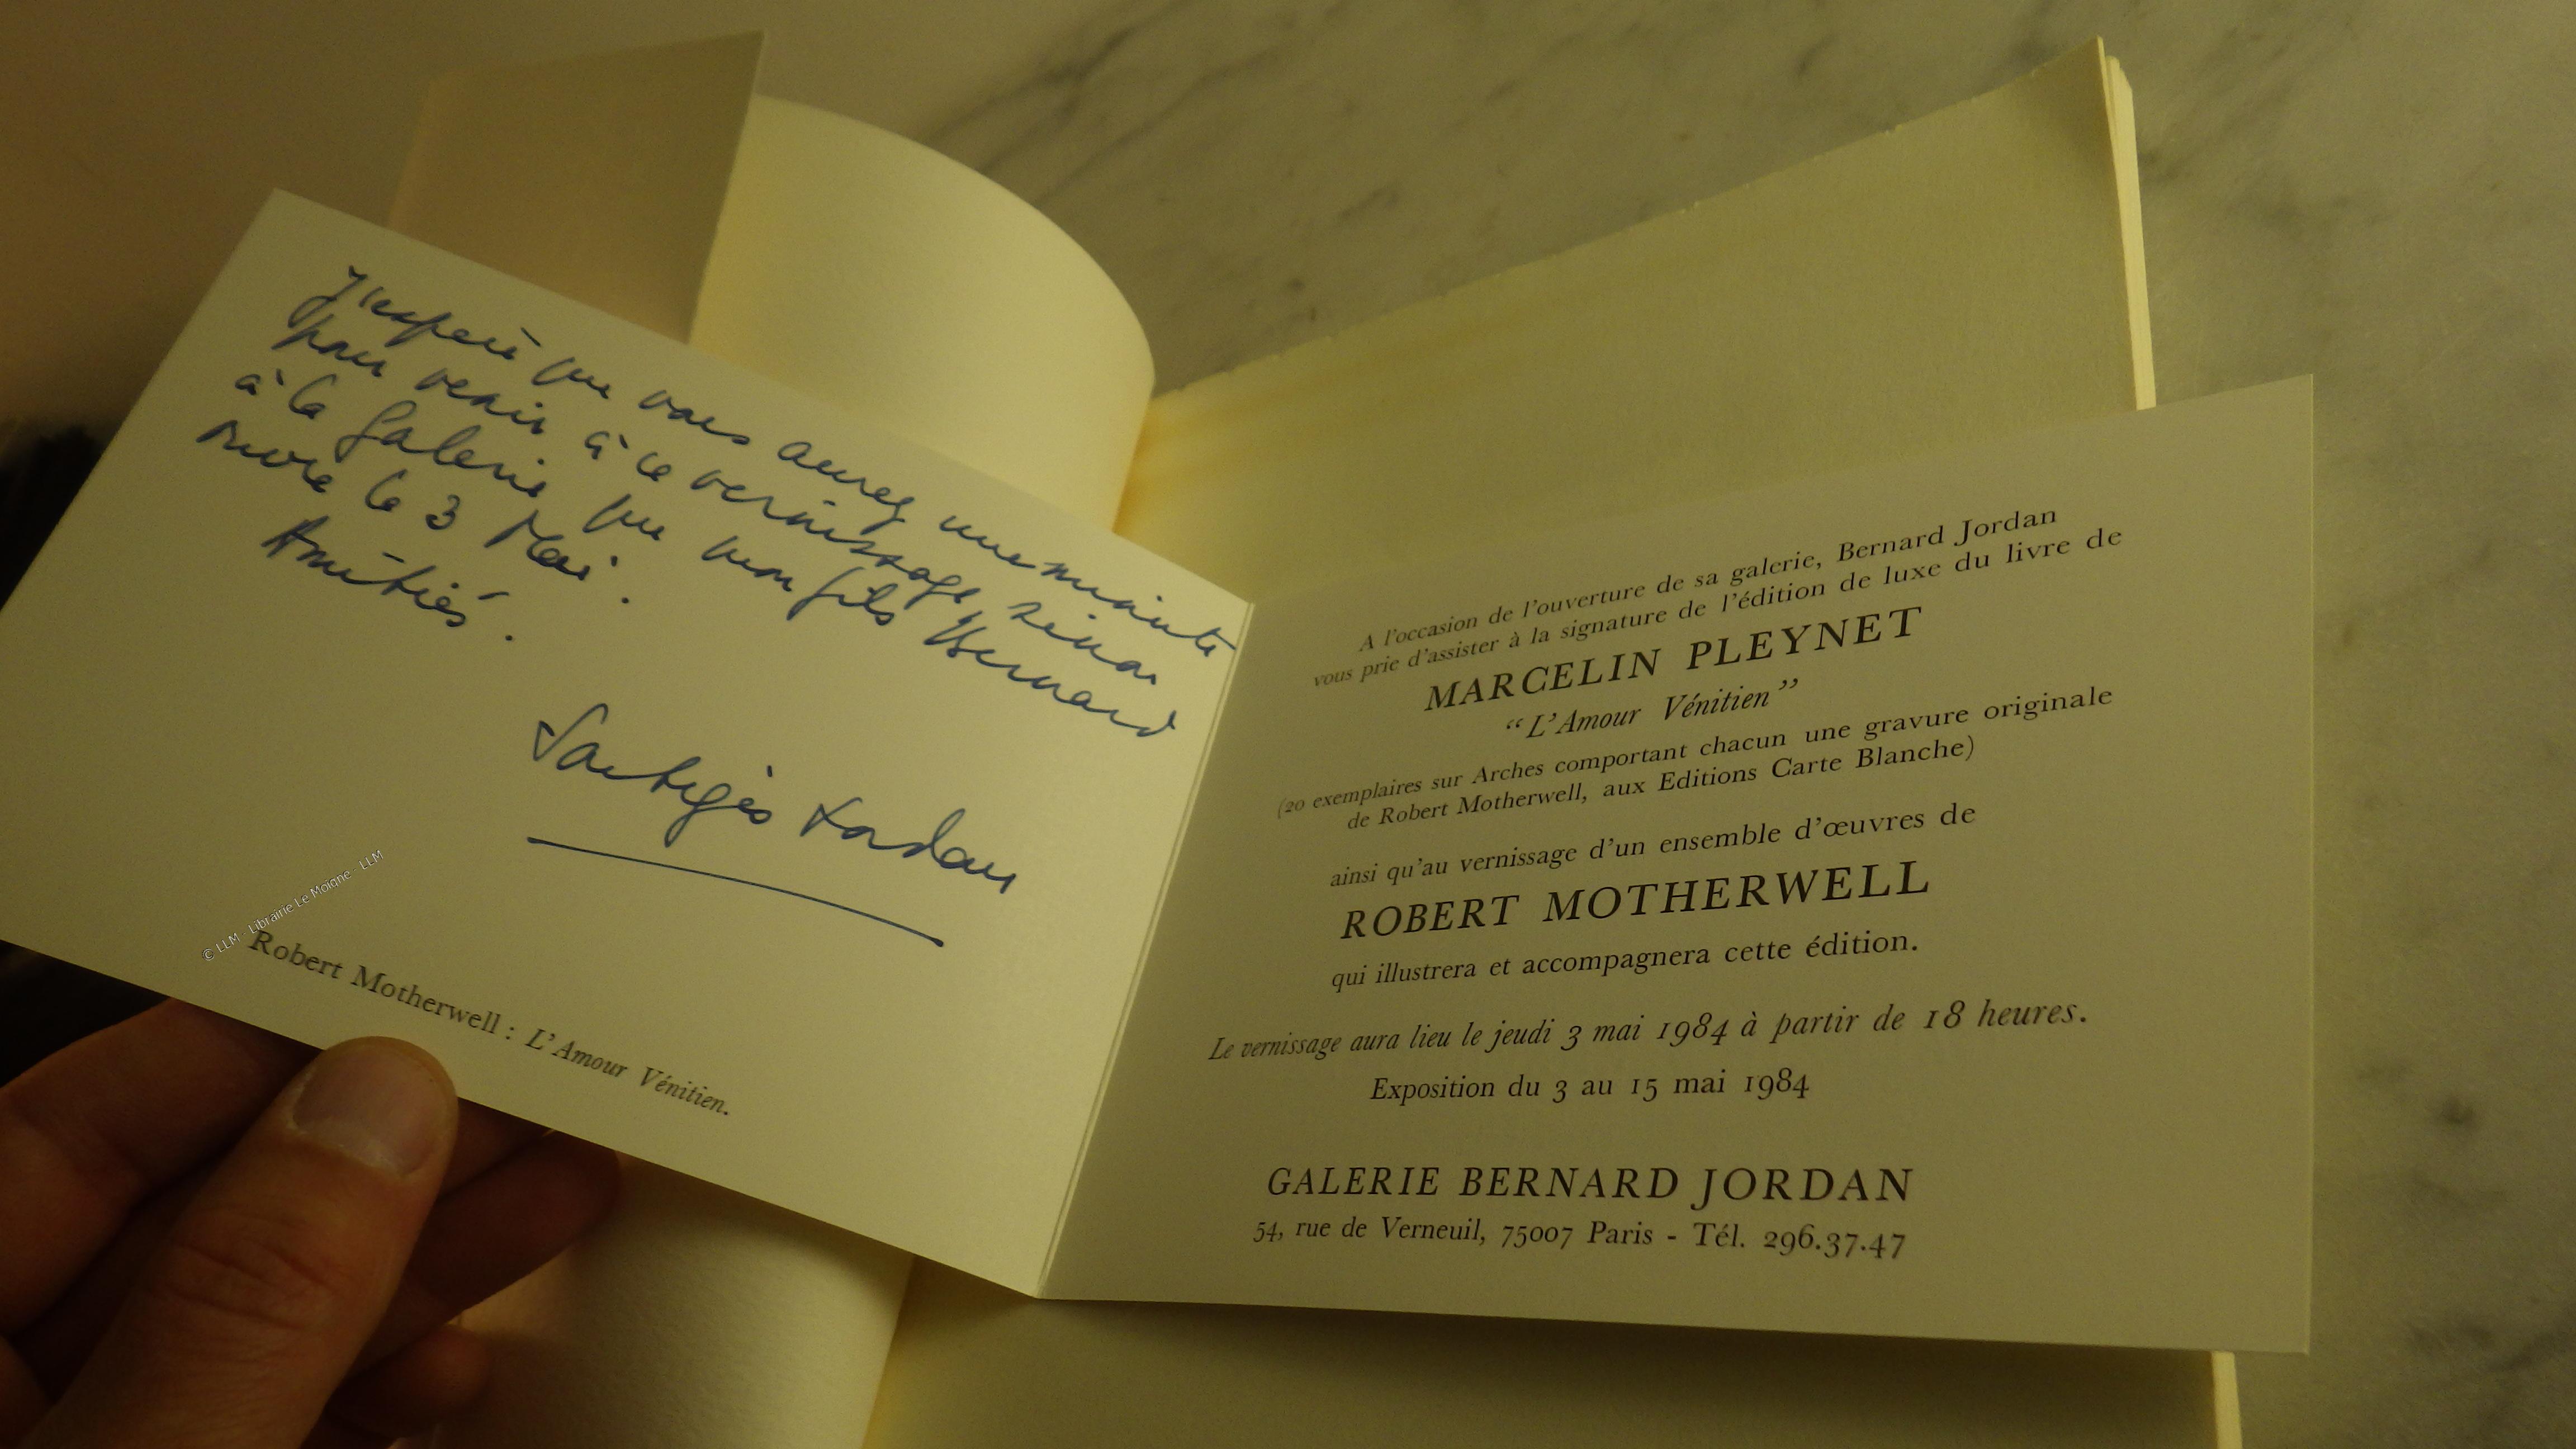 J'espère que vous aurez une minute
pour venir à ce vernissage sinon
à la Galerie que mon fils Bernard
ouvre le 3 Mai.
Amitiés.
Jordan
© LLM - Librairie Le Moigne - LLM
Robert Motherwell : L'Amour Vénitien.
A l'occasion de l'ouverture de sa galerie, Bernard Jordan
vous prie d'assister à la signature de l'édition de luxe du livre de
MARCELIN PLEYNET
“L'Amour Vénitien”
(20 exemplaires sur Arches comportant chacun une gravure originale
de Robert Motherwell, aux Editions Carte Blanche)
ainsi qu'au vernissage d'un ensemble d'œuvres de
ROBERT MOTHERWELL
qui illustrera et accompagnera cette édition.
Le vernissage aura lieu le jeudi 3 mai 1984 à partir de 18 heures.
Exposition du 3 au 15 mai 1984
GALERIE BERNARD JORDAN
54, rue de Verneuil, 75007 Paris - Tél. 296.37.47